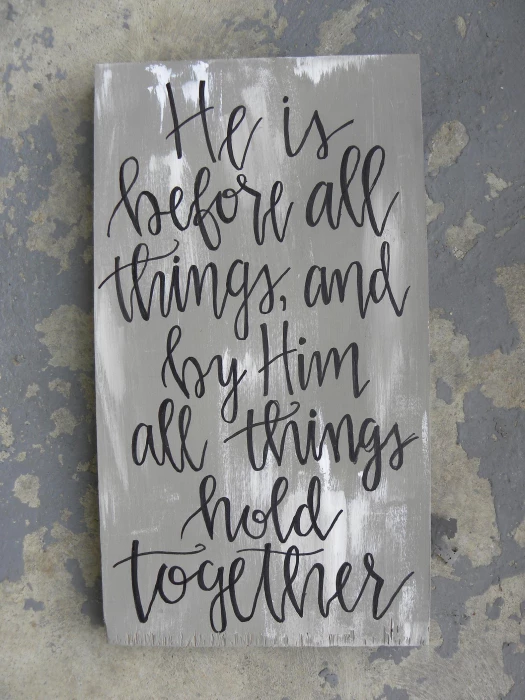 He is
before all
things, and
by Him
all things
hold
together